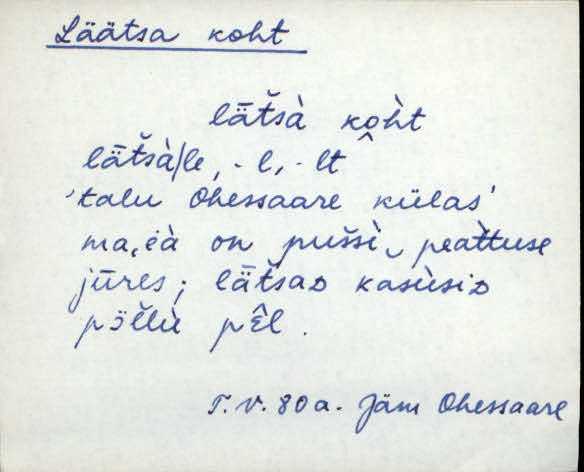 Läätsa koht
lǟt̆sà ko̭h̀t
lǟt̆sà/le, -l, -lt
'talu Ohessaare külas'
on pušsi peat̀tuse
jūres; lǟt̆saᴅ kasùsiᴅ
pɔ̈l̆lù pêl.
T.V. 80 a. Jäm Ohessaare